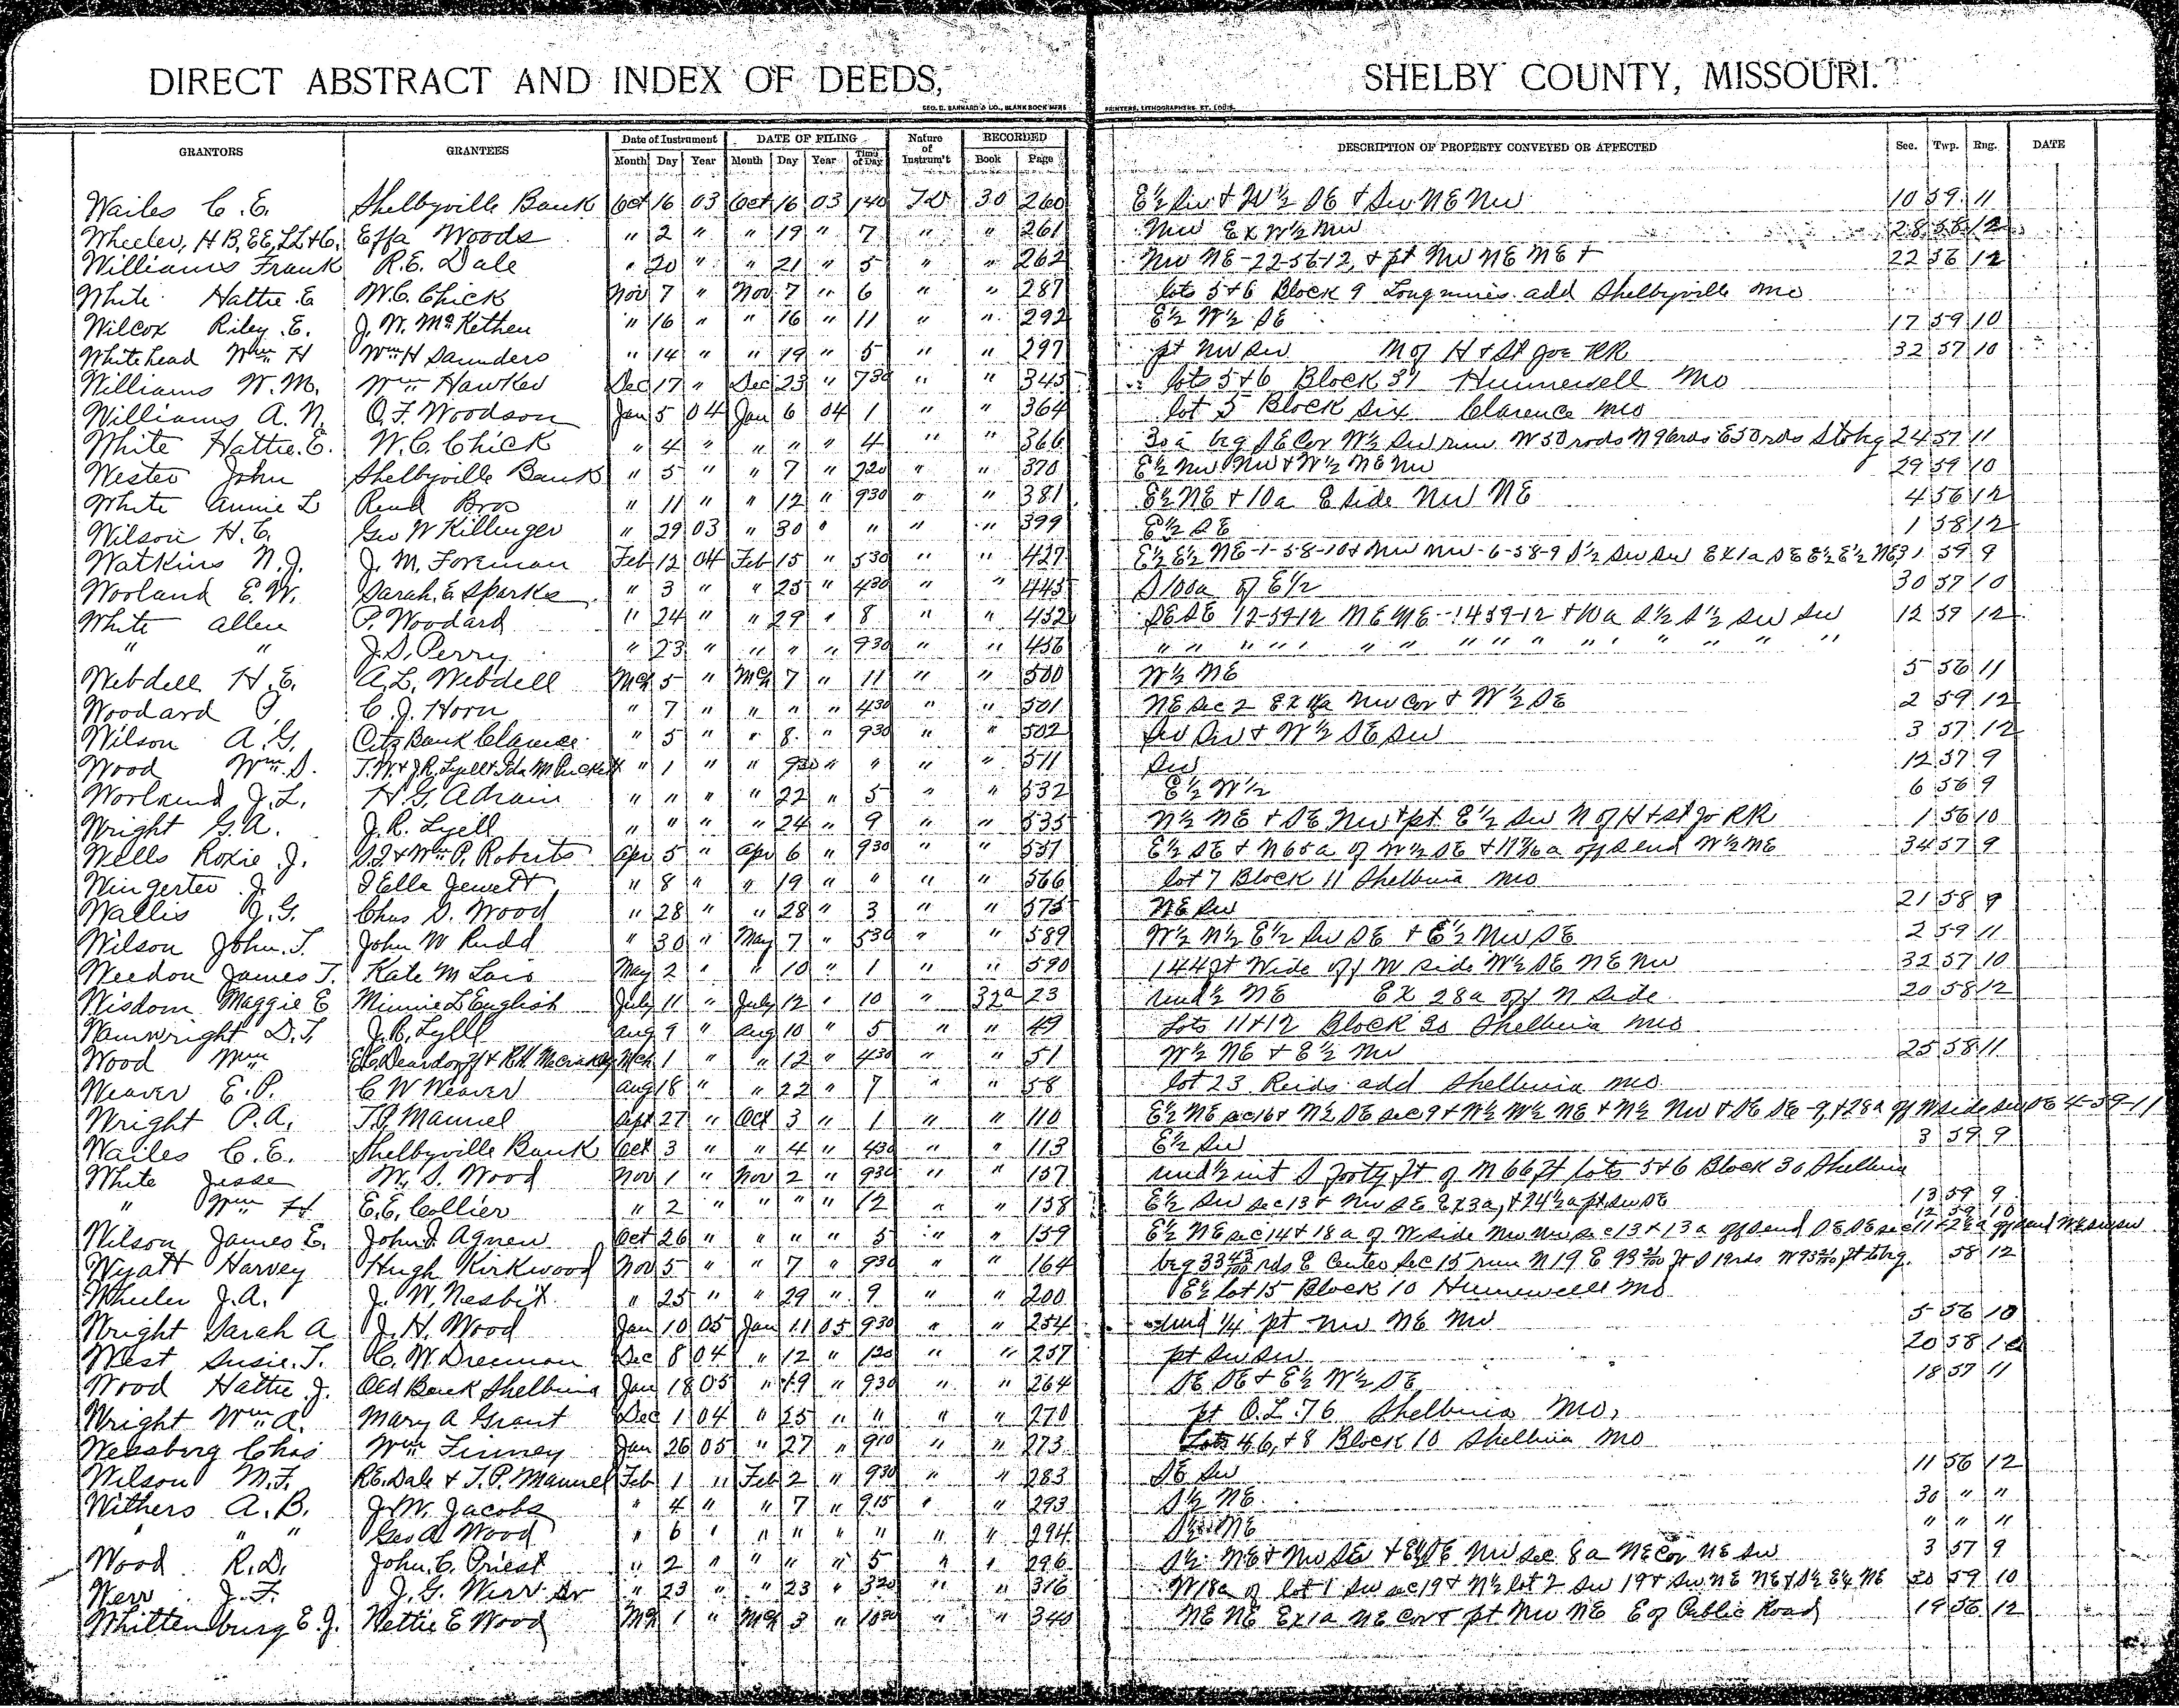 DIRECT ABSTRACT AND INDEX OF DEEDS, SHELBY COUNTY, MISSOURI.
GEO. D. BARNARD & CO., BLANK BOOK MFRS PRINTERS, LITHOGRAPHERS, ST. LOUIS.
GRANTORS GRANTEES Date of Instrument DATE OF FILING Nature of Instrum't RECORDED DESCRIPTION OF PROPERTY CONVEYED OR AFFECTED Sec. Twp. Rng. DATE
Month Day Year Month Day Year Time of Day Book Page
Wailes C. E. Shelbyville Bank Oct 16 03 Oct 16 03 140 TD 30 260 E½ Sw & W½ SE & Sw NE Nw 10 59 11
Wheeler, H B, EE, LL & C. Effa Woods " 2 " " 19 " 7 " " 261 Nw Ex W½ Nw 28 58 12
Williams Frank R.E. Dale " 20 " " 21 " 5 " " 262 Nw NE-22-56-12, & pt Nw NE NE & 22 56 12
White Hattie E W.C. Chick Nov 7 " Nov 7 " 6 " " 287 lots 5 & 6 Block 9 Longmires add Shelbyville Mo
Wilcox Riley E. J. W. McKethen " 16 " " 16 " 11 " " 292 E½ W½ SE 17 59 10
Whitehead Wm H Wm H Saunders " 14 " " 19 " 5 " " 297 pt Nw Sw N of H & St Joe RR 32 57 10
Williams W. M. Wm Hawker Dec 17 " Dec 23 " 730 " " 345 lots 5 & 6 Block 31 Hunnewell Mo
Williams A. N. O. F. Woodson Jan 5 04 Jan 6 04 1 " " 364 lot 5 Block six Clarence Mo
White Hattie E. W. C. Chick " 4 " " " " 4 " " 366 30a beg SE Cor W½ Sw run W 50 rods N 96rds E 50 rds S to beg 24 57 11
Wester John Shelbyville Bank " 5 " " 7 " 720 " " 370 E½ Nw Nw & W½ NE Nw 29 59 10
White Annie L Reud Bros " 11 " " 12 " 930 " " 381 E½ NE & 10a E side Nw NE 4 56 12
Wilson H. C. Geo W Killinger " 29 03 " 30 " " " " 399 E½ SE 1 58 12
Watkins N. J. J. M. Foreman Feb 12 04 Feb 15 " 530 " " 427 E½ E½ NE-1-58-10 & Nw Nw-6-58-9 S½ Sw Sw Ex 1a SE E½ E½ NE 31 59 9
Worland E. W. Sarah E Sparks " 3 " " 25 " 430 " " 445 S 100a of E½ 30 57 10
White Allen P. Woodard " 24 " " 29 " 8 " " 452 SE SE 12-59-12 NE NE-14-59-12 & 10a S½ S½ Sw Sw 12 59 12
" " J. S. Perry " 23 " " " " 930 " " 456 " " " " " " " " " " " " " "
Webdell H. E. A. L. Webdell Mch 5 " Mch 7 " 11 " " 500 W½ NE 5 56 11
Woodard P. C. J. Horn " 7 " " " " 430 " " 501 NE Sec 2 Ex Nw Cor & W½ SE 2 59 12
Wilson A. G. Citz Bank Clarence " 5 " " 8 " 930 " " 502 Sw Sw & W½ SE Sw 3 57 12
Wood Wm S. T. W. & J. R. Lyell & Ida M Puckett " 1 " " 9 " " " " 511 Sw 12 57 9
Worland J. L. H. G. Adrain " " " " 22 " 5 " " 532 E½ W½ 6 56 9
Wright G. A. J. R. Lyell " " " " 24 " 9 " " 535 N½ NE & SE Nw & pt E½ Sw N of H & St Jo RR 1 56 10
Wells Roxie J. S.J. & Wm P. Roberts Apr 5 " Apr 6 " 930 " " 557 E½ SE & N65a of W½ SE & off S end W½ NE 34 57 9
Wingerter J. I Elle Jewett " 8 " " 19 " " " " 566 lot 7 Block 11 Shelbina Mo
Wallis J. G. Chas S. Wood " 28 " " 28 " 3 " " 575 NE Sw 21 58 9
Wilson John T. John W Rudd " 30 " May 7 " 530 " " 589 W½ N½ E½ Sw SE & E½ Nw SE 2 59 11
Weedon James T. Kate M Lois May 2 " " 10 " 1 " " 590 144 ft Wide off W side W½ SE NE Nw 32 57 10
Wisdom Maggie E Minnie L English July 11 " July 12 " 10 " 32a 23 und½ NE Ex 28a off N side 20 58 12
Wainwright D. T. J. R. Lyell Aug 9 " Aug 10 " 5 " " 49 Lots 11 & 12 Block 30 Shelbina Mo
Wood Wm E.C. Deardorff & R.H. McCrakey Mch 1 " " 12 " 430 " " 51 W½ NE & E½ Nw 25 58 11
Weaver E. P. C W Weaver Aug 18 " " 22 " 7 " " 58 lot 23 Reids add Shelbina Mo
Wright P. A. T. P. Manuel Sept 27 " Oct 3 " 1 " " 110 E½ NE sec 16 & N½ SE sec 9 & W½ W½ NE & N½ Nw & SE SE-9, & 28a off N side Sw SE 4-59-11
Wailes C. E. Shelbyville Bank Oct 3 " " 4 " 430 " " 113 E½ Sw 3 59 9
White Jesse W. S. Wood Nov 1 " Nov 2 " 930 " " 157 und½ int S forty ft of N 66 ft lots 5 & 6 Block 30 Shelbina
" Wm H E. E. Collier " 2 " " " " 12 " " 158 E½ Sw sec 13 & Nw SE Ex 3a, & 24½a pt Sw SE 13 59 9
Wilson James E. John J Agnew Oct 26 " " " " 5 " " 159 E½ NE sec 14 & 18a of W side Nw Nw sec 13 & 13a off S end SE SE sec 11 & 28a off S end NE Sw Sw 12 59 10
Wyatt Harvey Hugh Kirkwood Nov 5 " " 7 " 930 " " 164 beg 33 43/100 rds E Center Sec 15 run N 19 E 93 ft S 19rds W 93 ft to beg. 58 12
Wheeler J. A. J. W. Nesbit " 25 " " 29 " 9 " " 200 E½ lot 15 Block 10 Hunnewell Mo
Wright Sarah A J. H. Wood Jan 10 05 Jan 11 05 930 " " 254 und ¼ pt Nw NE Nw 5 56 10
West Susie T. C. W Drennan Dec 8 04 " 12 " 120 " " 257 pt Sw Sw 20 58 10
Wood Hattie J. Old Bank Shelbina Jan 18 05 " 19 " 930 " " 264 SE SE & E½ W½ SE 18 57 11
Wright Wm A. Mary A Grant Dec 1 04 " 25 " " " " 270 pt O.L. 76 Shelbina Mo.
Wessburg Chas Wm Finney Jan 26 05 " 27 " 910 " " 273 Lots 4, 6, & 8 Block 10 Shelbina Mo
Wilson M. F. R.E. Dale & T. P. Manuel Feb 1 " Feb 2 " 930 " " 283 SE Sw 11 56 12
Withers A. B. J. W. Jacobs " 4 " " 7 " 915 " " 293 S½ NE 30 " "
" " " Geo A Wood " 6 " " " " " " " 294 S½ NE " " "
Wood R. D. John C. Priest " 2 " " " " 5 " " 296 S½ NE & Nw SE & E½ SE Nw sec 8a NE Cor NE Sw 3 57 9
Werr J. F. J. G. Werr Sr " 23 " " 23 " 320 " " 316 W18a of lot 1 Sw sec 19 & N½ lot 2 Sw 19 & Sw NE NE & S½ E½ NE 30 59 10
Whittenburg E. J. Nettie E Wood Mch 1 " Mch 3 " 1030 " " 340 NE NE Ex 1a NE Cor & pt Nw NE E of Public Road 19 56 12